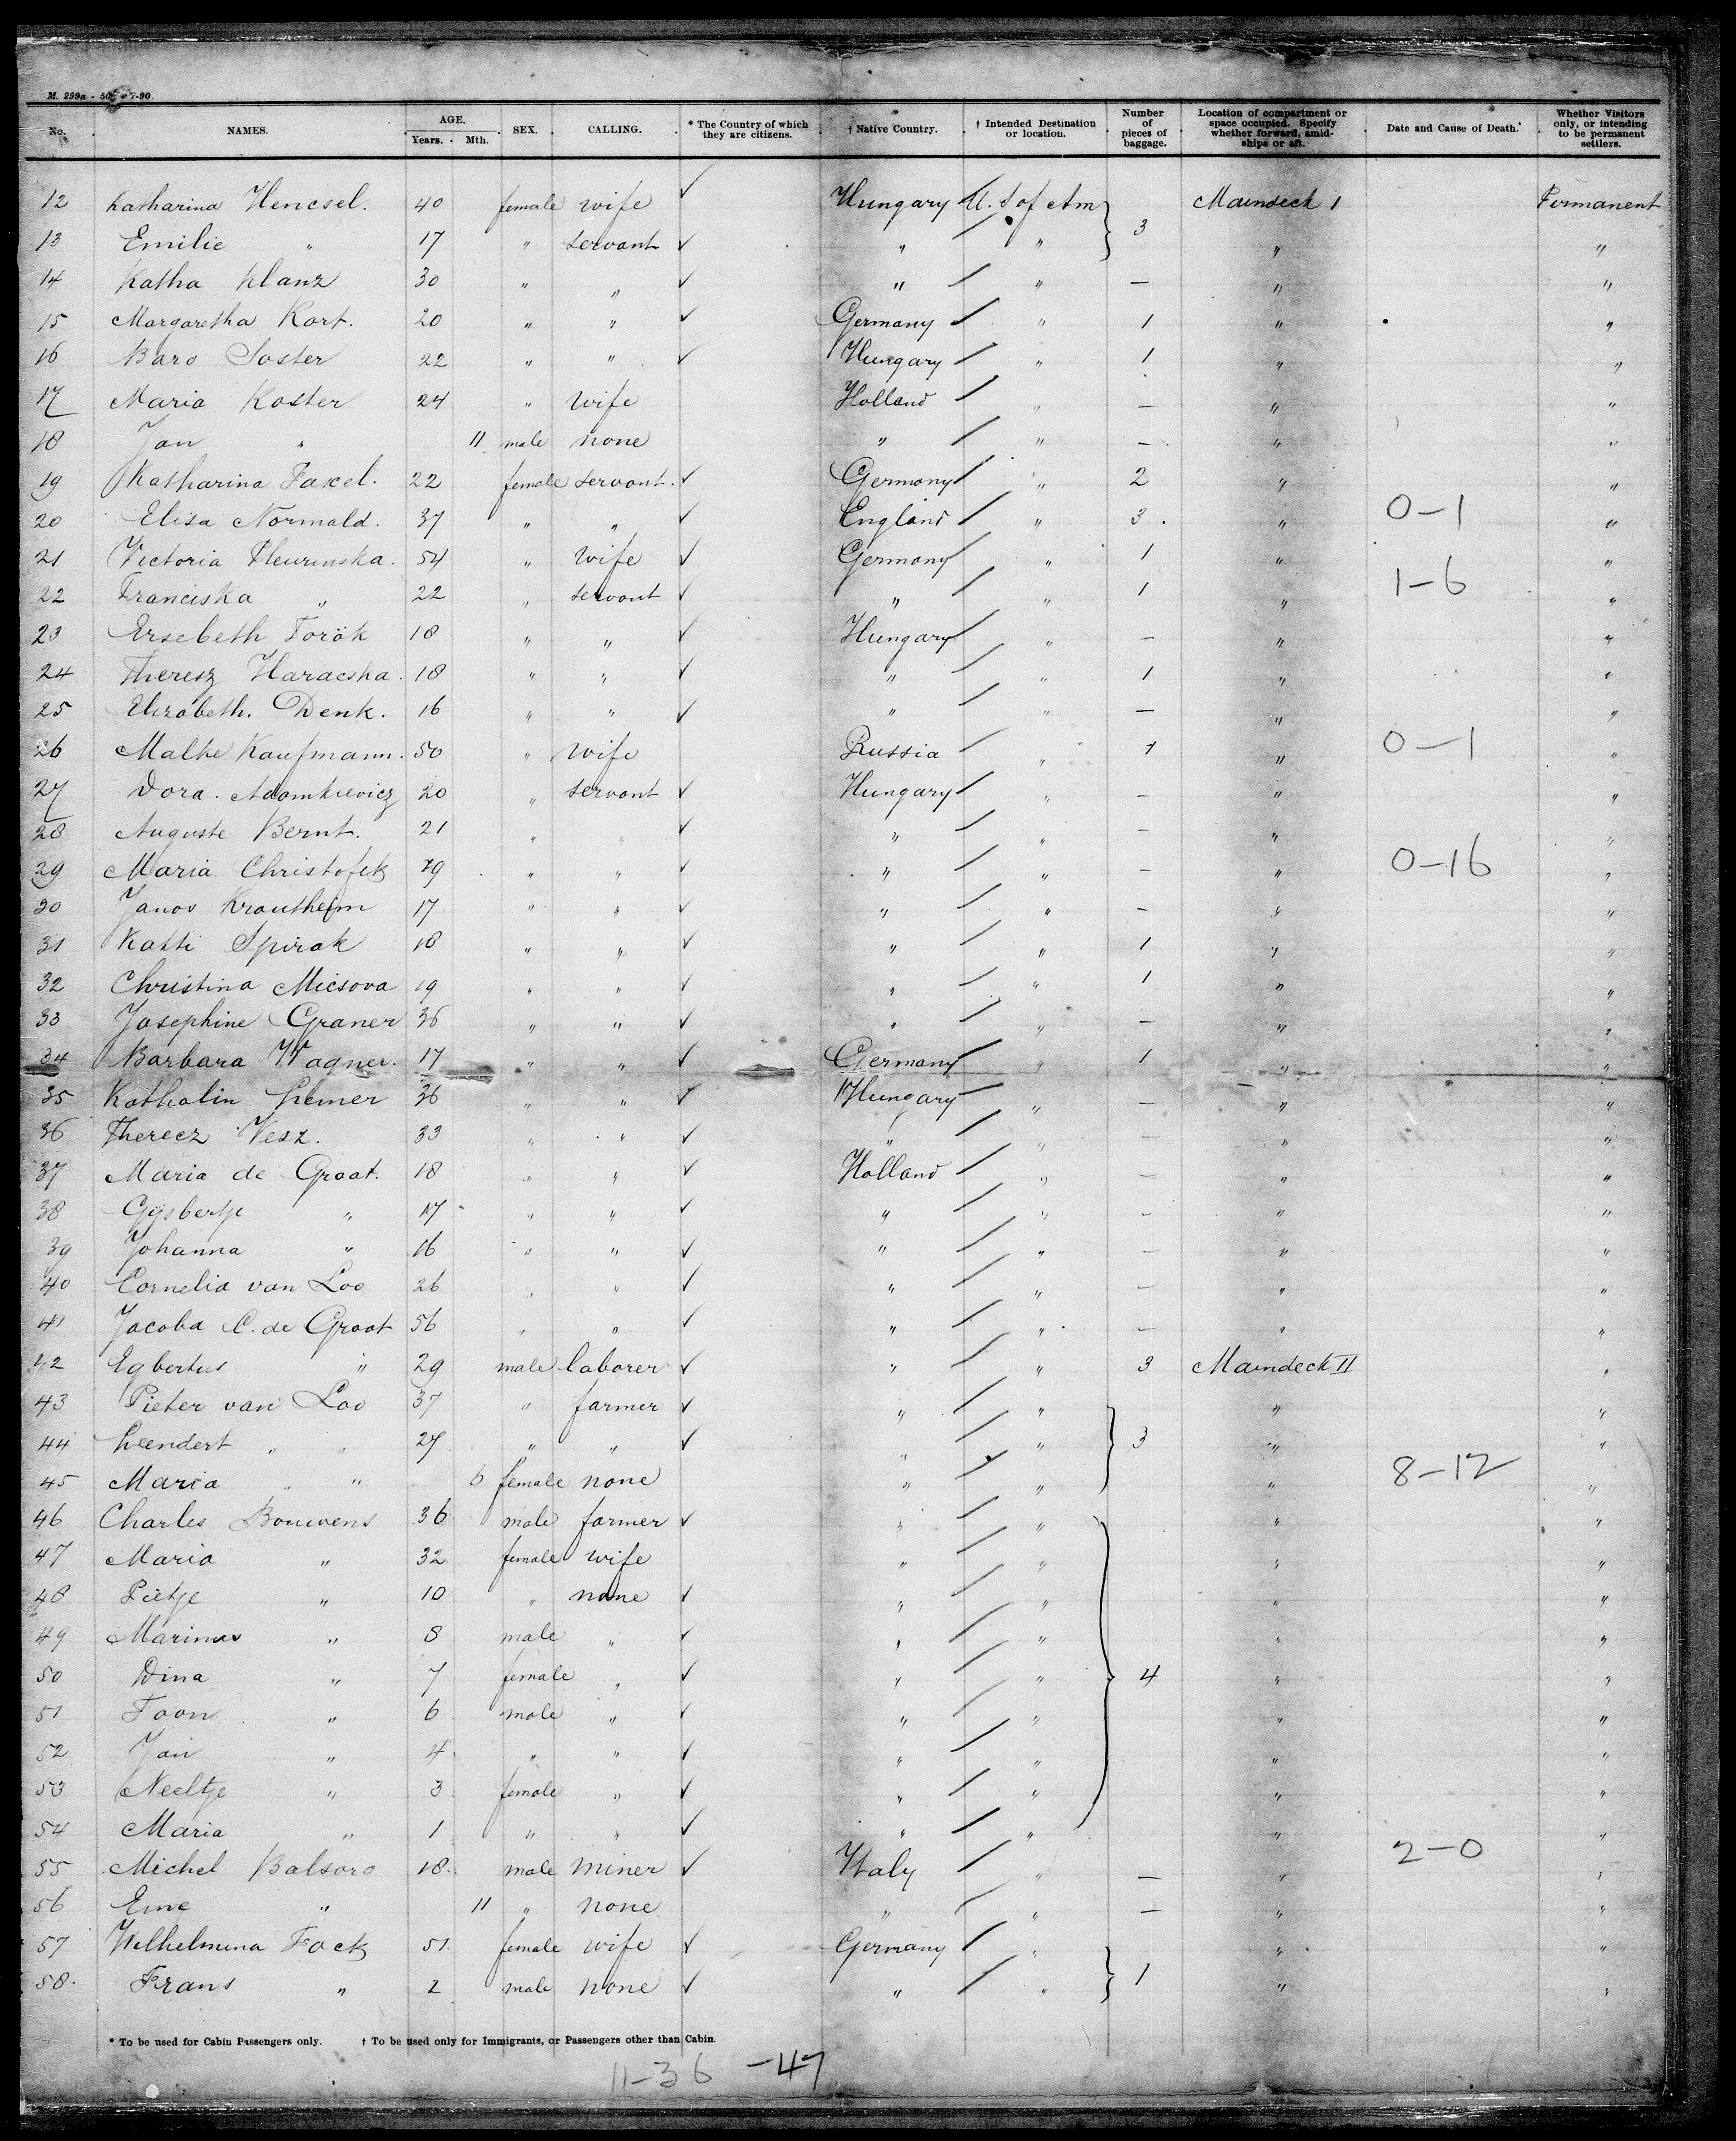 M. 299a - 7-90.
No. NAMES. AGE. Years. Mth. SEX. CALLING. * The Country of which they are citizens. † Native Country. † Intended Destination or location. Number of pieces of baggage. Location of compartment or space occupied. Specify whether forward, amidships or aft. Date and Cause of Death. Whether Visitors only, or intending to be permanent settlers.
12 Katharina Hencsel. 40 female wife ✓ Hungary U. S of Am 3 Maindeck 1 Permanent
13 Emilie " 17 " servant ✓ " " " "
14 Katha Klanz 30 " " ✓ " " — " "
15 Margaretha Kort. 20 " " ✓ Germany " 1 " "
16 Baro Soster 22 " " ✓ Hungary " 1 " "
17 Maria Koster 24 " wife Holland " — " "
18 Jan " 11 male none " " — " "
19 Katharina Faxel. 22 female servant. ✓ Germany " 2 " "
20 Elisa Normald. 37 " " ✓ England " 3. " 0-1 "
21 Victoria 54 " wife ✓ Germany " 1 " "
22 Franciska " 22 " servant ✓ " " 1 " 1-6 "
23 Ersebeth Török 18 " " ✓ Hungary " — " "
24 Theresz Haracska. 18 " " ✓ " " 1 " "
25 Elizabeth. Denk. 16 " " ✓ " " — " "
26 Malke Kaufmann. 50 " wife Russia " 1 " 0-1 "
27 Dora. Adamkievicz 20 " servant ✓ Hungary " — " "
28 Auguste Bernt. 21 " " ✓ " " — " "
29 Maria Christofek 29 " " ✓ " " — " 0-16 "
30 Janos Krautheim 17 " " ✓ " " — " "
31 Katti Spirak 18 " " ✓ " " 1 " "
32 Christina Micsova 19 " " ✓ " " 1 " "
33 Josephine Graner 36 " " ✓ " " — " "
34 Barbara Wagner. 17 " " ✓ Germany " 1 " "
35 Kathalin Lemer 36 " " ✓ Hungary " — " "
36 Therecz Vesz. 33 " " ✓ " " — " "
37 Maria de Groot. 18 " " ✓ Holland " — " "
38 Gijsbertje " 17 " " ✓ " " — " "
39 Johanna " 16 " " ✓ " " — " "
40 Cornelia van Loo 26 " " ✓ " " — " "
41 Jacoba C. de Groot 56 " " ✓ " " — " "
42 Egbertus " 29 male laborer ✓ " " 3 Maindeck II "
43 Pieter van Loo 37 " farmer ✓ " " " "
44 Leendert " " 27 " " ✓ " " 3 " "
45 Maria " " 6 female none " " " 8-12 "
46 Charles Bouwens 36 male farmer ✓ " " " "
47 Maria " 32 female wife " " " "
48 Pietje " 10 " none ✓ " " " "
49 Marinus " 8 male " ✓ " " " "
50 Dina " 7 female " ✓ " " 4 " "
51 Toon " 6 male " ✓ " " " "
52 Jan " 4 " " ✓ " " " "
53 Neeltje " 3 female " ✓ " " " "
54 Maria " 1 " " ✓ " " " "
55 Michel Balsoro 18. male miner ✓ Italy " — " 2-0 "
56 " 11 " none " " — " "
57 Wilhelmina Fock 51 female wife ✓ Germany " 1 " "
58. Frans " 2 male none ✓ " " " "
* To be used for Cabin Passengers only. † To be used only for Immigrants, or Passengers other than Cabin.
11-36 -47